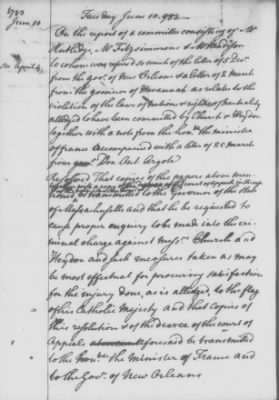 1783
June 10
Tuesday June 10. 1783.
On the report of a committee consisting of Mr
Rutledge, Mr Fitzsimmons & Mr Madison
to whom was referred so much of the letter of 5 Decr
See April 4
from the govr. of New Orleans & a letter of 2 March
from the governor of Havannah as relates to the
violation of the laws of nations & rights of neutrality
alledged to have been committed by Church & Haydon
together with a note from the honble. the minister
of france accompanied with a letter of 22 march
from Don Ant Argote
Resolved That copies of the papers above men
tioned be transmitted to the Governor of the state
of Massachusetts and that he be requested to
cause proper enquiry to be made into the cri
minal charge against Messrs. Church and
Heydon and such measures taken as may
be most effectual for procuring satisfaction
for the injury done, as is alledged, to the flag
of his Catholic Majesty and that copies of
this resolution & of the decree of the court of
Appeals aforesaid be transmitted
to the Honble. the Minister of France and
to the Govr. of New Orleans